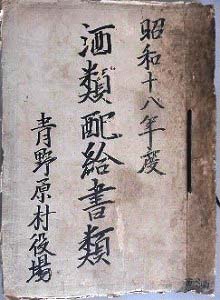 昭和十八年度
酒類配給書類
青野原村役場